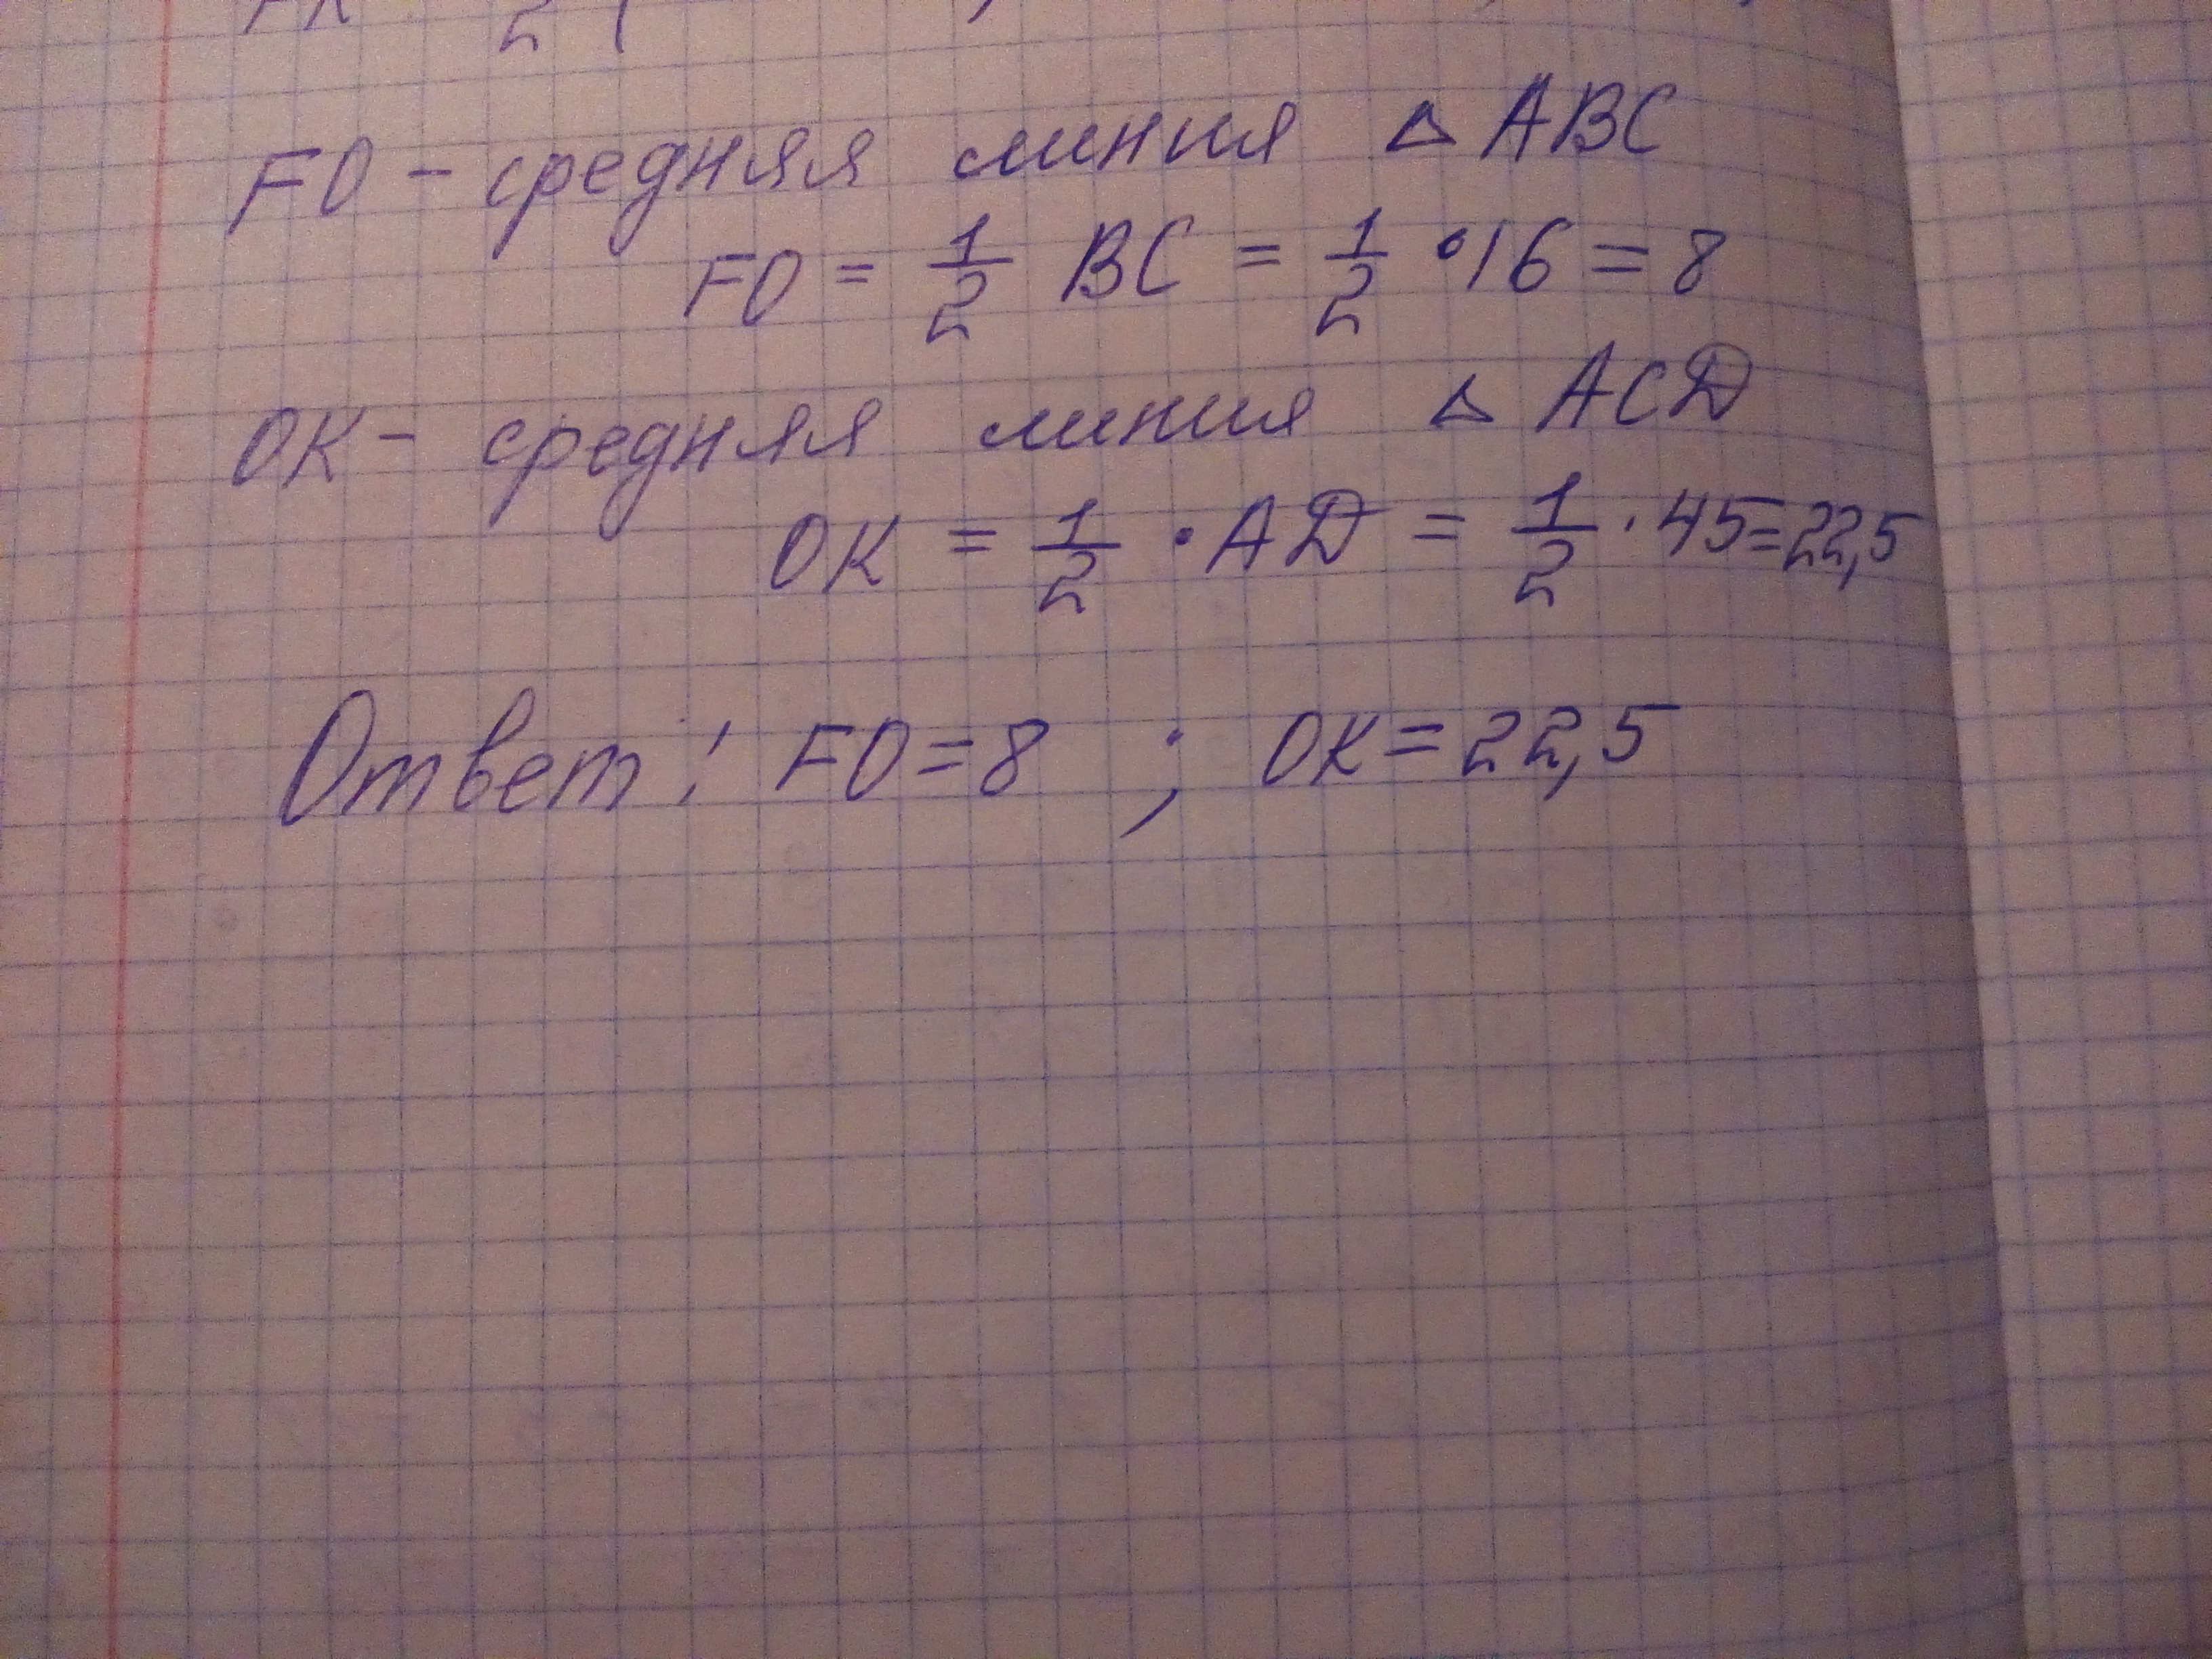 FO - средняя линия △ ABC
FO = 1/2 BC = 1/2 • 16 = 8
OK - средняя линия △ ACD
OK = 1/2 • AD = 1/2 · 45 = 22,5
Ответ: FO = 8 ; OK = 22,5